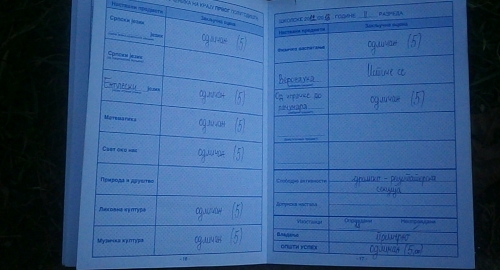 НА КРАЈУ ПРВОГ ПОЛУГОДИШТА
Наставни предмети
Закључна оцена
Српски језик
одличан (5)
Српски језик
Енглески језик
одличан (5)
Математика
одличан (5)
Свет око нас
одличан (5)
Природа и друштво
Ликовна култура
одличан (5)
Музичка култура
одличан (5)
- 10 -
ШКОЛСКЕ ГОДИНЕ II РАЗРЕДА
Наставни предмети
Закључна оцена
Физичко васпитање
одличан (5)
Веронаука
Истиче се
Од играчке до
рачунара
одличан (5)
Слободне активности
драмско - рецитаторска
секција
Друштвене
Изостанци
Оправдани
Неоправдани
Владање
примерно
ОПШТИ УСПЕХ
одличан